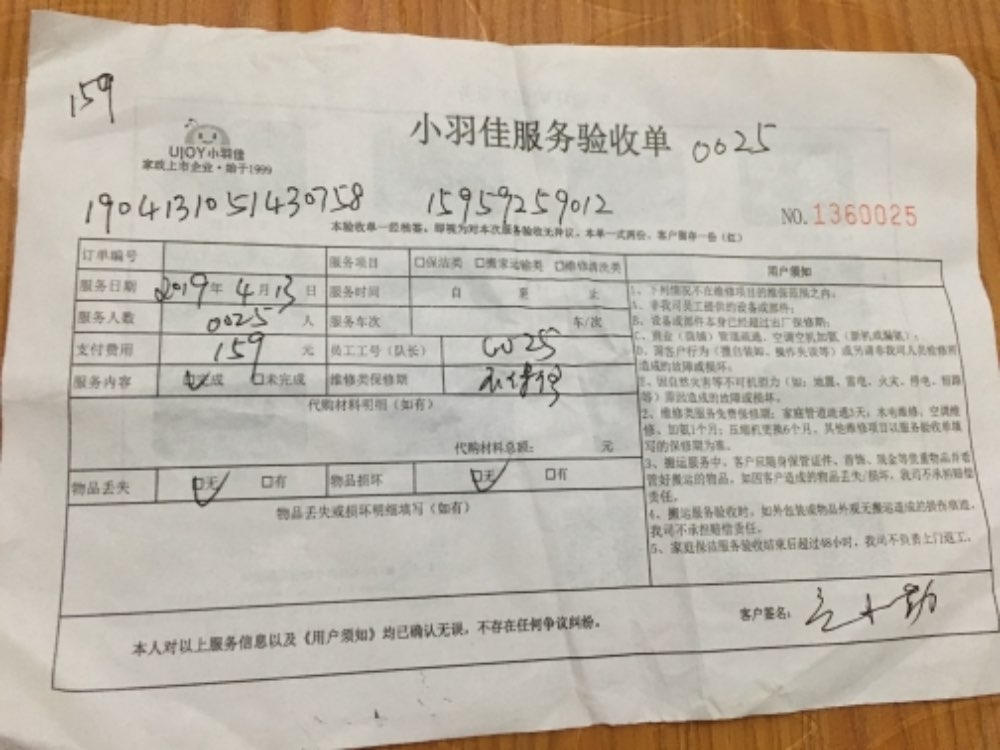 159
UJOY小羽佳
家政上市企业·始于1999
小羽佳服务验收单 0025
1904131051430758 15959259012
NO.1360025
本验收单一经签署，即视为对本次服务验收无异议。本单一式两份，客户留存一份（红）
订单编号 服务项目 □保洁类 □搬家运输类 □维修清洗类
服务日期 2019年4月13日 服务时间 自 至 止
服务人数 0025 人 服务车次 车/次
支付费用 159 元 员工工号（队长） 0025
服务内容 □完成 □未完成 维修类保修期
代购材料明细（如有）
代购材料总额： 元
物品丢失 □无 □有 物品损坏 □无 □有
物品丢失或损坏明细填写（如有）
用户须知
1、下列情况不在维修项目的维保范围之内：
A、非我司员工提供的设备或部件；
B、设备或部件本身已经超过出厂保修期；
C、商业（店铺）管道疏通、空调空机加氨（新机或漏氨）；
D、因客户行为（擅自装卸、操作失误等）或另请非我司人员检修所
造成的故障或损坏。
E、因自然灾害等不可抗力（如：地震、雷电、火灾、停电、短路
等）原因造成的故障或损坏。
2、维修类服务免费保修期：家庭管道疏通3天，水电维修、空调维
修、加氨1个月；压缩机更换6个月。其他维修项目以服务验收单填
写的保修期为准。
3、搬运服务中，客户应随身保管证件、首饰、现金等贵重物品并看
管好搬运的物品，如因客户造成的物品丢失/损坏，我司不承担赔偿
责任。
4、搬运服务验收时，如外包装或物品外观无搬运造成的损伤痕迹，
我司不承担赔偿责任。
5、家庭保洁服务验收结束后超过48小时，我司不负责上门返工。
本人对以上服务信息以及《用户须知》均已确认无误，不存在任何争议纠纷。
客户签名：